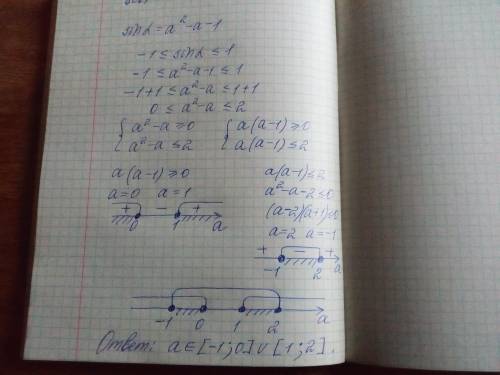 sin α = a² - a - 1
-1 ≤ sin α ≤ 1
-1 ≤ a² - a - 1 ≤ 1
-1+1 ≤ a² - a ≤ 1+1
0 ≤ a² - a ≤ 2
{ a² - a ≥ 0 { a(a-1) ≥ 0
{ a² - a ≤ 2 { a(a-1) ≤ 2
a(a-1) ≥ 0 a(a-1) ≤ 2
a=0 a=1 a² - a - 2 ≤ 0
+ - + (a-2)(a+1) ≤ 0
0 1 a a=2 a=-1
+ - +
-1 2 a
-1 0 1 2 a
Ответ: a ∈ [-1; 0] ∪ [1; 2].